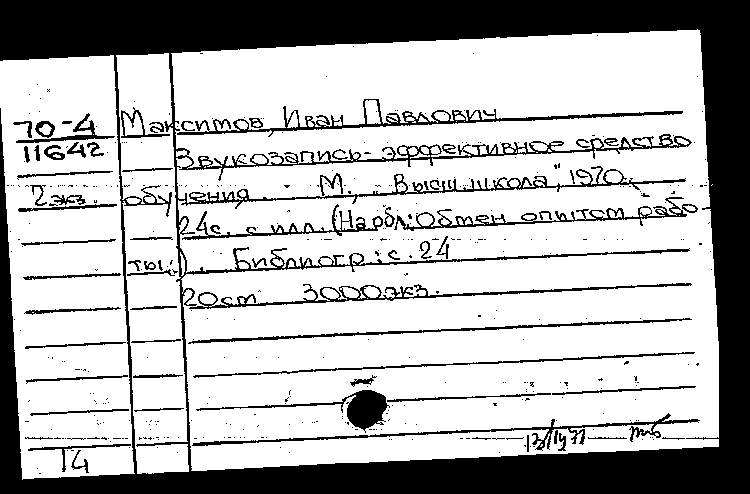 70-4 Максимов, Иван Павлович
11642 Звукозапись - эффективное средство
2 экз. обучения. М., "Высш. школа", 1970.
24с. с илл. (На обл.: Обмен опытом рабо-
ты.). Библиогр.: с. 24
20 ст 3000 экз.
14